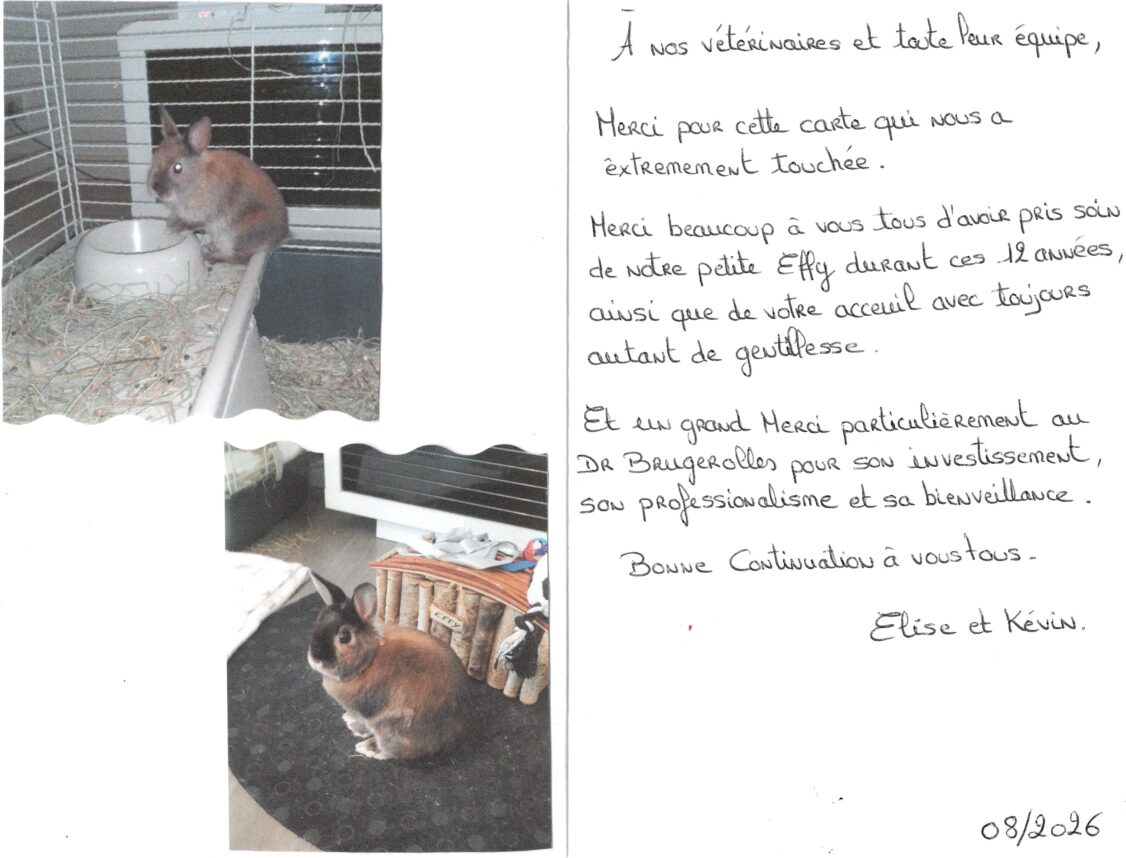 À nos vétérinaires et toute leur équipe,
Merci pour cette carte qui nous a
èxtremement touchée.
Merci beaucoup à vous tous d'avoir pris soin
de notre petite Effy durant ces 12 années,
ainsi que de votre acceuil avec toujours
autant de gentillesse.
Et un grand Merci particulièrement au
Dr Brugerolles pour son investissement,
son professionalisme et sa bienveillance.
Bonne Continuation à vous tous.
Elise et Kévin.
08/2026
EFFY